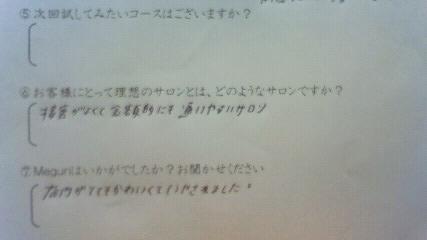 ⑤次回試してみたいコースはございますか？
⑥お客様にとって理想のサロンとは、どのようなサロンですか？
がなくて金額的にも通いやすいサロン
⑦Meguriはいかがでしたか？お聞かせください
店内がとてもかわいくていやされました。